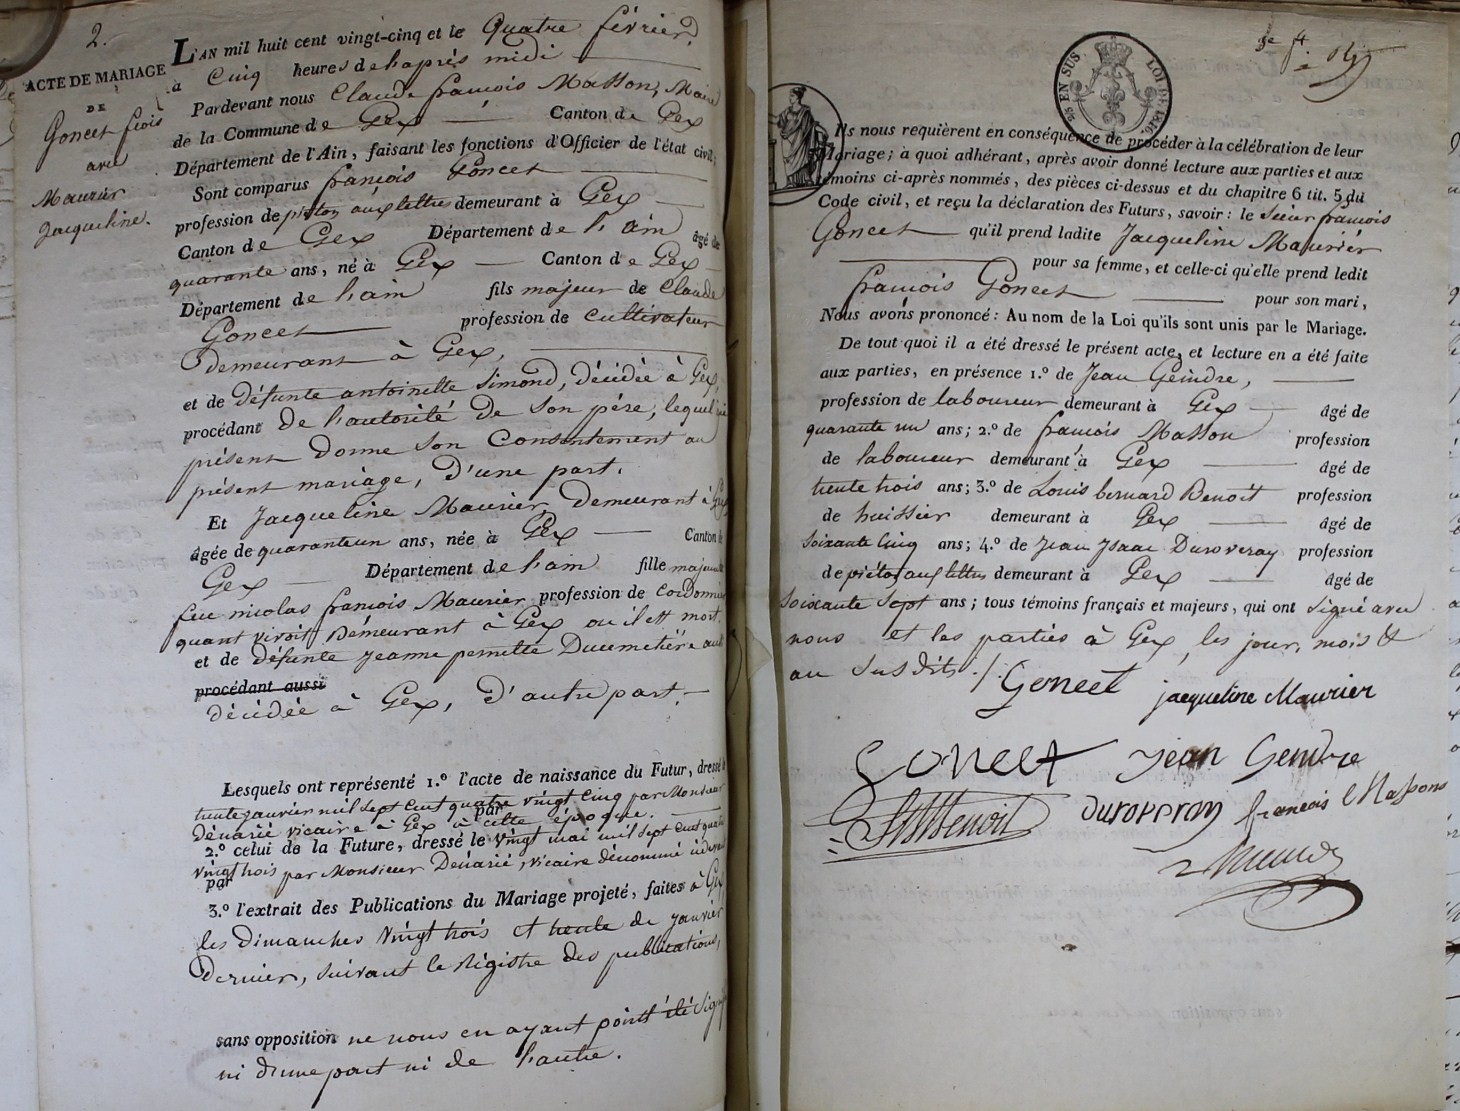 2.
ACTE DE MARIAGE
DE
Goncet fçois
avec
Maurier
Jacqueline.
L'AN mil huit cent vingt-cinq et le Quatre février,
à Cinq heures de l'après midi
Pardevant nous Claude françois Masson, Maire
de la Commune de Gex Canton de Gex
Département de l'Ain, faisant les fonctions d'Officier de l'état civil;
Sont comparus françois Goncet
profession de piéton aux lettres demeurant à Gex
Canton de Gex Département de l'ain âgé de
quarante ans, né à Gex Canton de Gex
Département de l'ain fils majeur de Claude
Goncet profession de Cultivateur
demeurant à Gex,
et de défunte antoinette Simond, décédée à Gex,
procédant de l'autorité de Son père, lequel ici
présent donne Son Consentement au
présent mariage, D'une part.
Et Jacqueline Maurier, Demeurant à Gex
âgée de quarante un ans, née à Gex Canton de
Gex Département de l'ain fille majeure
feu nicolas françois Maurier profession de Cordonnier
quant vivoit Demeurant à Gex où il est mort,
et de défunte jeanne pernette Ducimetière aussi
procédant aussi
décédée à Gex, D'autre part.
Lesquels ont représenté 1.º l'acte de naissance du Futur, dressé le
trente janvier mil sept Cent quatre vingt Cinq par Monsieur
par
Dénarié vicaire à Gex à cette époque.
2.º celui de la Future, dressé le vingt mai mil sept Cent quatre
vingt trois par Monsieur Dénarié, vicaire dénommé
par
3.º l'extrait des Publications du Mariage projeté, faites à Gex
les Dimanches vingt trois et trente de janvier
Dernier, suivant le Régistre des publications,
sans opposition ne nous en ayant point été Signifié
ni d'une part ni de l'autre.
EN SUS
LOI DE 1816.
Ils nous requièrent en conséquence de procéder à la célébration de leur
Mariage; à quoi adhérant, après avoir donné lecture aux parties et aux
témoins ci-après nommés, des pièces ci-dessus et du chapitre 6 tit. 5 du
Code civil, et reçu la déclaration des Futurs, savoir: le Sieur françois
Goncet qu'il prend ladite Jacqueline Maurier
pour sa femme, et celle-ci qu'elle prend ledit
françois Goncet pour son mari,
Nous avons prononcé: Au nom de la Loi qu'ils sont unis par le Mariage.
De tout quoi il a été dressé le présent acte, et lecture en a été faite
aux parties, en présence 1.º de Jean Geindre,
profession de laboureur demeurant à Gex âgé de
quarante un ans; 2.º de françois Masson profession
de laboureur demeurant à Gex âgé de
trente trois ans; 3.º de Louis bernard Benoit profession
de huissier demeurant à Gex âgé de
Soixante Cinq ans; 4.º de Jean Isaac Duroveray profession
de piéton aux lettres demeurant à Gex âgé de
Soixante Sept ans; tous témoins français et majeurs, qui ont Signé avec
nous et les parties à Gex, les jour, mois &
an Susdits ./.
Goncet jacqueline Maurier
Goncet jean Gendre
Benoit Duroveray francois Massons